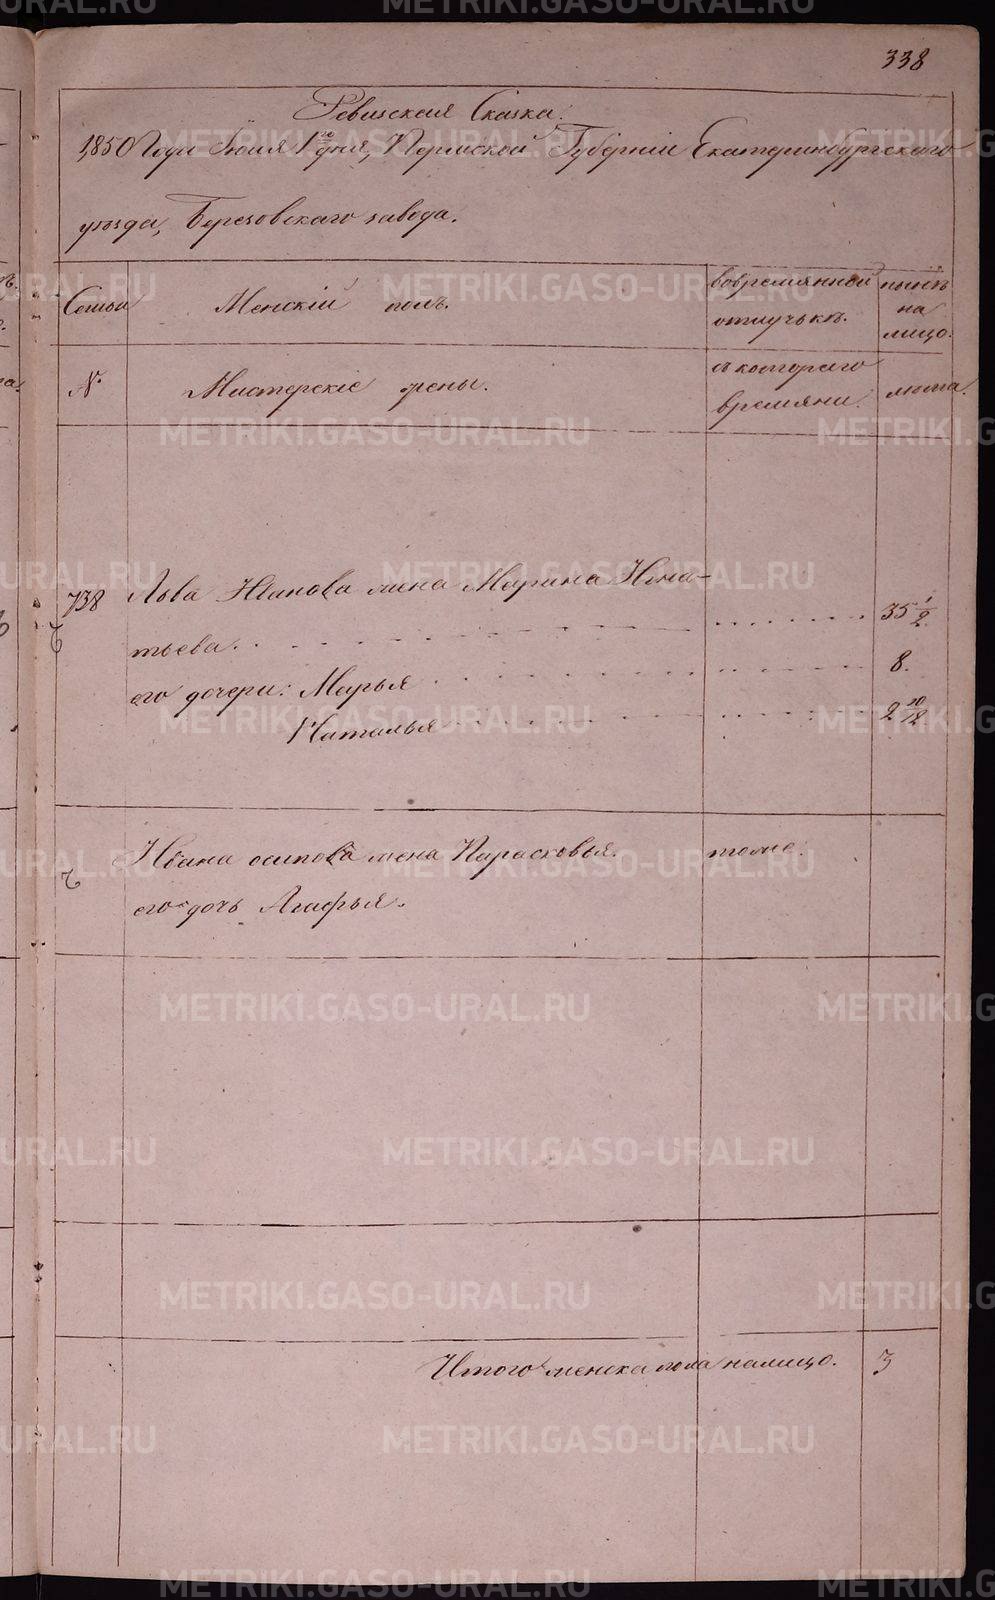 338
Ревизская Сказка.
1850 Года Июня 1го дня, Пермской Губернiи Екатеринбургскаго
уезда, Березовскаго завода.
Семьи
Женскiй полъ.
вовремянной отлучькѣ.
нынѣ на лицо.
№
Мастерскiе жены.
съ котораго времяни.
лѣта.
738 Льва Иванова жена Марина Игна-
тьева. 35 1/2.
его дочери: Марья 8.
Наталья 2 10/12
Ивана осипова жена Парасковья. тоже.
его дочь Агафья.
Итого женска пола налицо. 3
METRIKI.GASO-URAL.RU